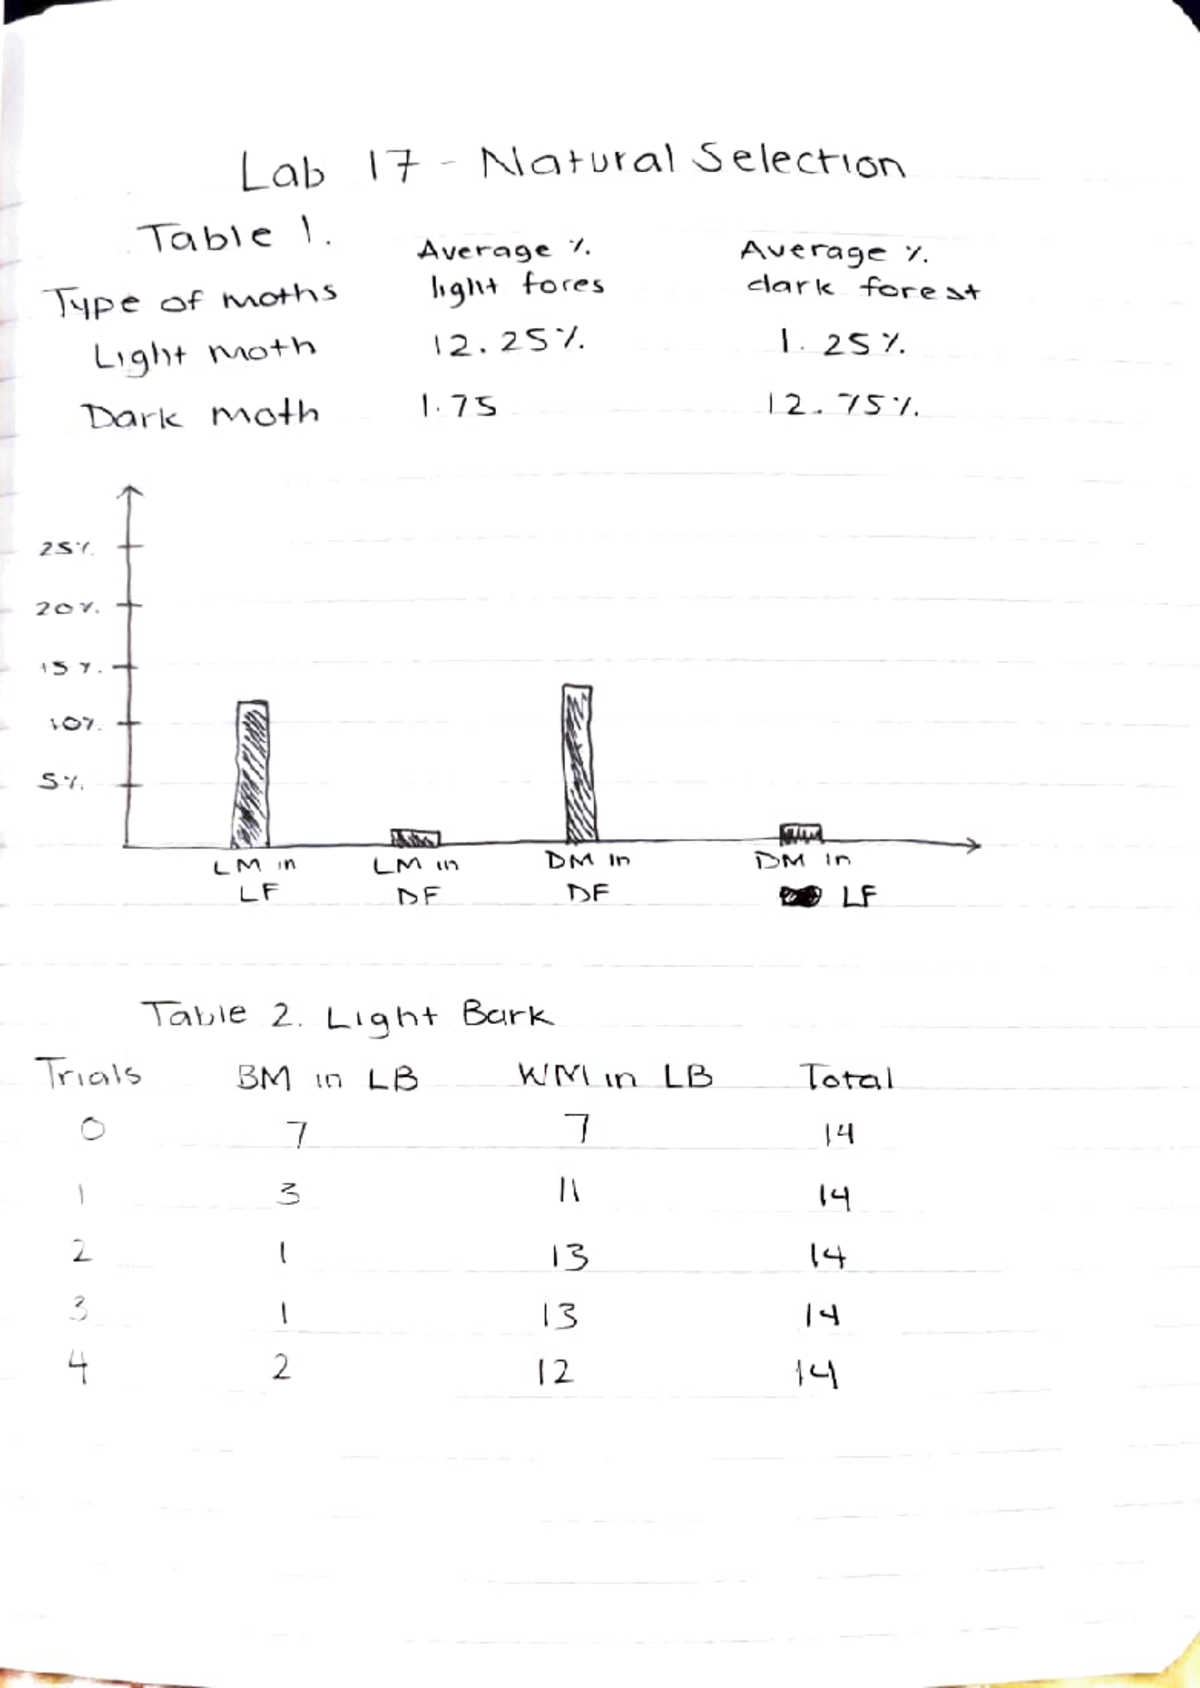 Lab 17 - Natural Selection
Table 1.
Type of moths Average % light fores Average % dark forest
Light moth 12.25% 1.25%
Dark moth 1.75 12.75%
25%
20%
15%
10%
5%
LM in LF LM in DF DM in DF DM in LF
Table 2. Light Bark
Trials BM in LB WM in LB Total
0 7 7 14
1 3 11 14
2 1 13 14
3 1 13 14
4 2 12 14